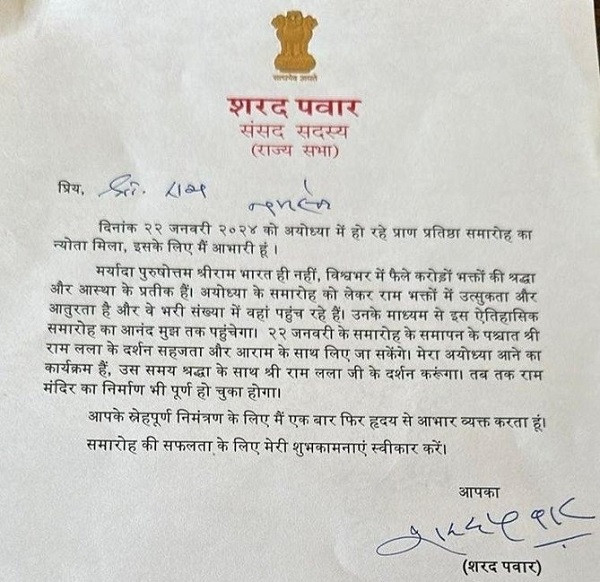 सत्यमेव जयते
शरद पवार
संसद सदस्य
(राज्य सभा)
प्रिय, श्री. राय
नमस्ते
दिनांक २२ जनवरी २०२४ को अयोध्या में हो रहे प्राण प्रतिष्ठा समारोह का
न्योता मिला, इसके लिए मैं आभारी हूं ।
मर्यादा पुरुषोत्तम श्रीराम भारत ही नहीं, विश्वभर में फैले करोड़ों भक्तों की श्रद्धा
और आस्था के प्रतीक हैं। अयोध्या के समारोह को लेकर राम भक्तों में उत्सुकता और
आतुरता है और वे भरी संख्या में वहां पहुंच रहे हैं। उनके माध्यम से इस ऐतिहासिक
समारोह का आनंद मुझ तक पहुंचेगा। २२ जनवरी के समारोह के समापन के पश्चात श्री
राम लला के दर्शन सहजता और आराम के साथ लिए जा सकेंगे। मेरा अयोध्या आने का
कार्यक्रम हैं, उस समय श्रद्धा के साथ श्री राम लला जी के दर्शन करूंगा। तब तक राम
मंदिर का निर्माण भी पूर्ण हो चुका होगा।
आपके स्नेहपूर्ण निमंत्रण के लिए मैं एक बार फिर हृदय से आभार व्यक्त करता हूं।
समारोह की सफलता के लिए मेरी शुभकामनाएं स्वीकार करें।
आपका
शरद पवार
(शरद पवार)